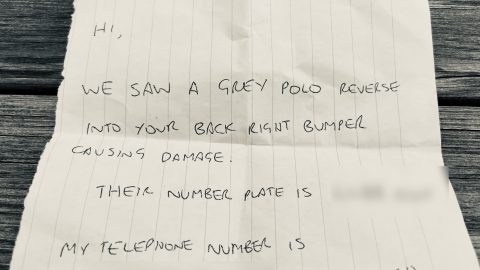 HI,
WE SAW A GREY POLO REVERSE
INTO YOUR BACK RIGHT BUMPER
CAUSING DAMAGE.
THEIR NUMBER PLATE IS
MY TELEPHONE NUMBER IS